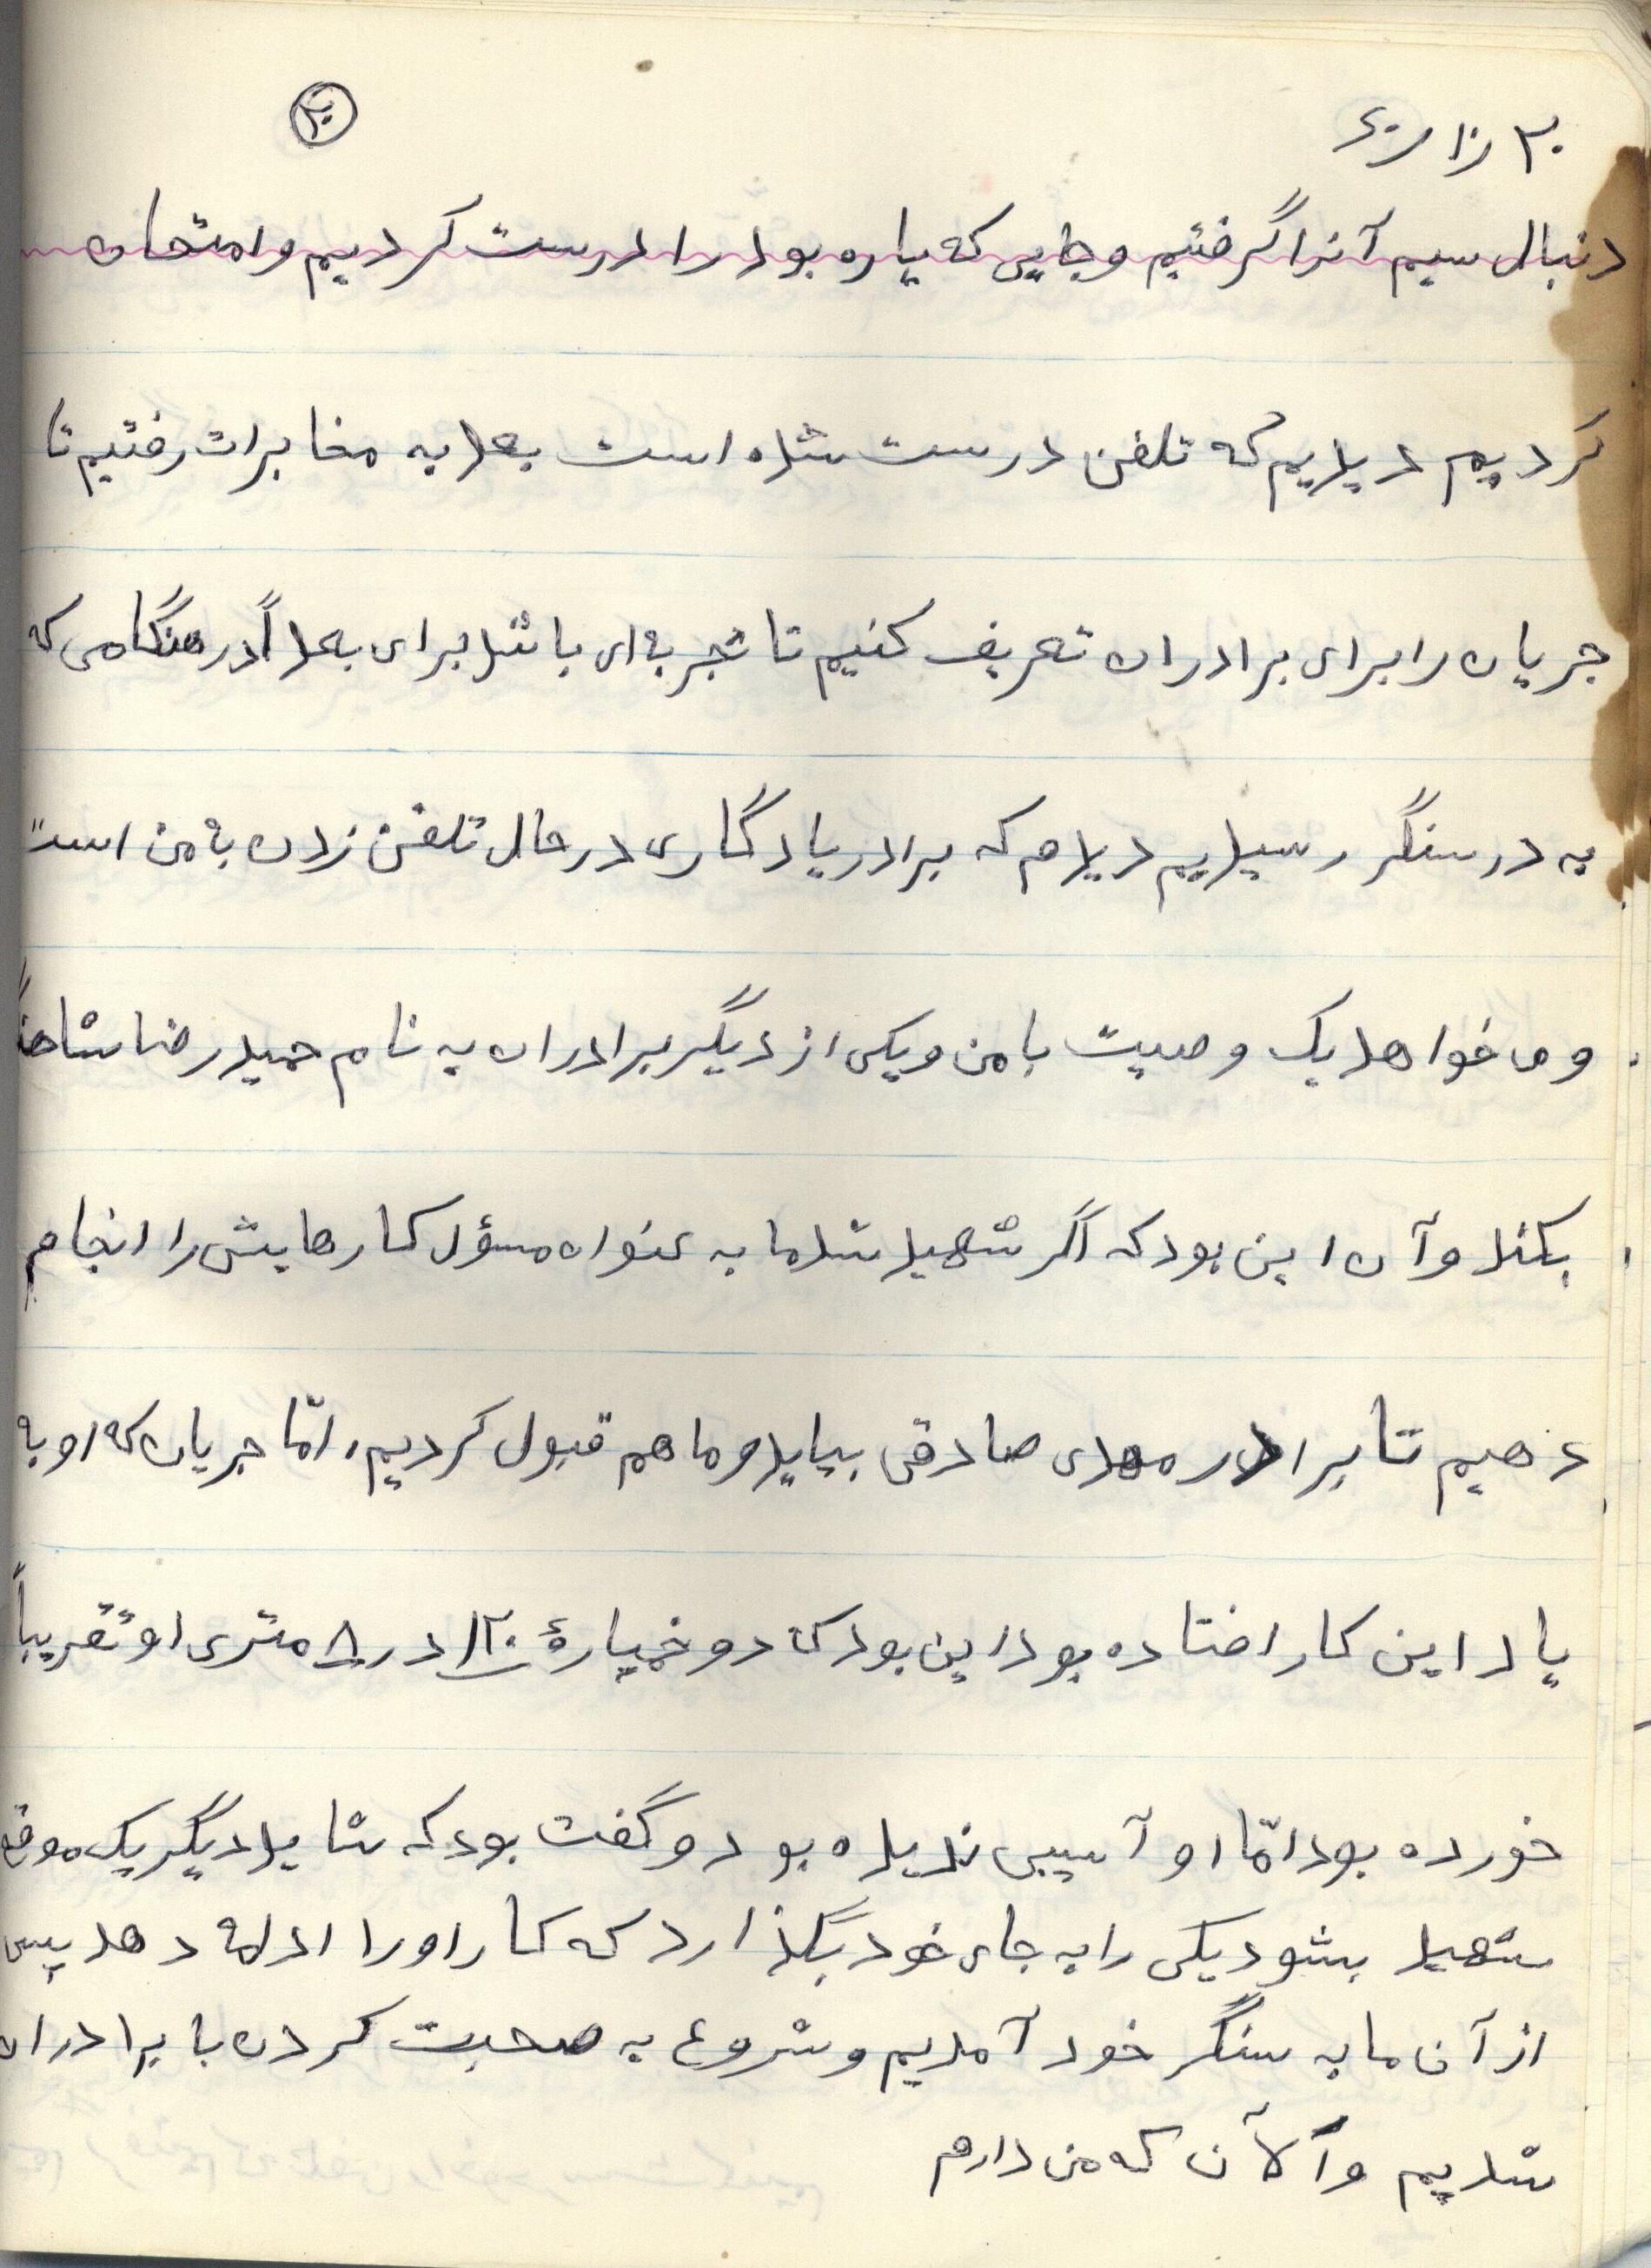 دنبال سیم آنرا گرفتیم و جایی که پاره بود را درست کردیم و امتحان
کردیم دیدیم که تلفن درست شده است بعد به مخابرات رفتیم تا
جریان را برای برادران تعریف کنیم تا تجربه‌ای باشد برای بعداً در هنگامی که
به در سنگر رسیدیم دیدم که برادر یادگاری در حال تلفن زدن به من است
و می‌خواهد یک وصیت با من و یکی از دیگر برادران به نام حمید رضا
بکند و آن این بود که اگر شهید شد ما به عنوان مسؤل کارهایش را انجام
دهیم تا برادر مهدی صادقی بیاید و ما هم قبول کردیم، امّا جریان که او به
یاد این کار افتاده بود این بود که دو خمپارهٔ ۱۲۰ در ۸ متری او تقریباً
خورده بود امّا او آسیبی ندیده بود و گفت بود که شاید دیگر یک موقع
شهید بشود یکی را به جای خود بگذارد که کار او را ادامه دهد پس
از آن ما به سنگر خود آمدیم و شروع به صحبت کردن با برادران
شدیم و اَلآن که من دارم